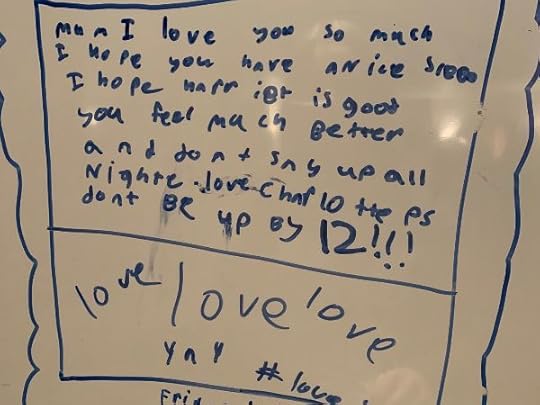 mum I love you so much
I hope you have a nice sleep
I hope harriet is good
you feel much better
and dont stay up all
Nighte love Charlotte ps
dont Be up by 12!!!
love love love
yay
#love
Frid